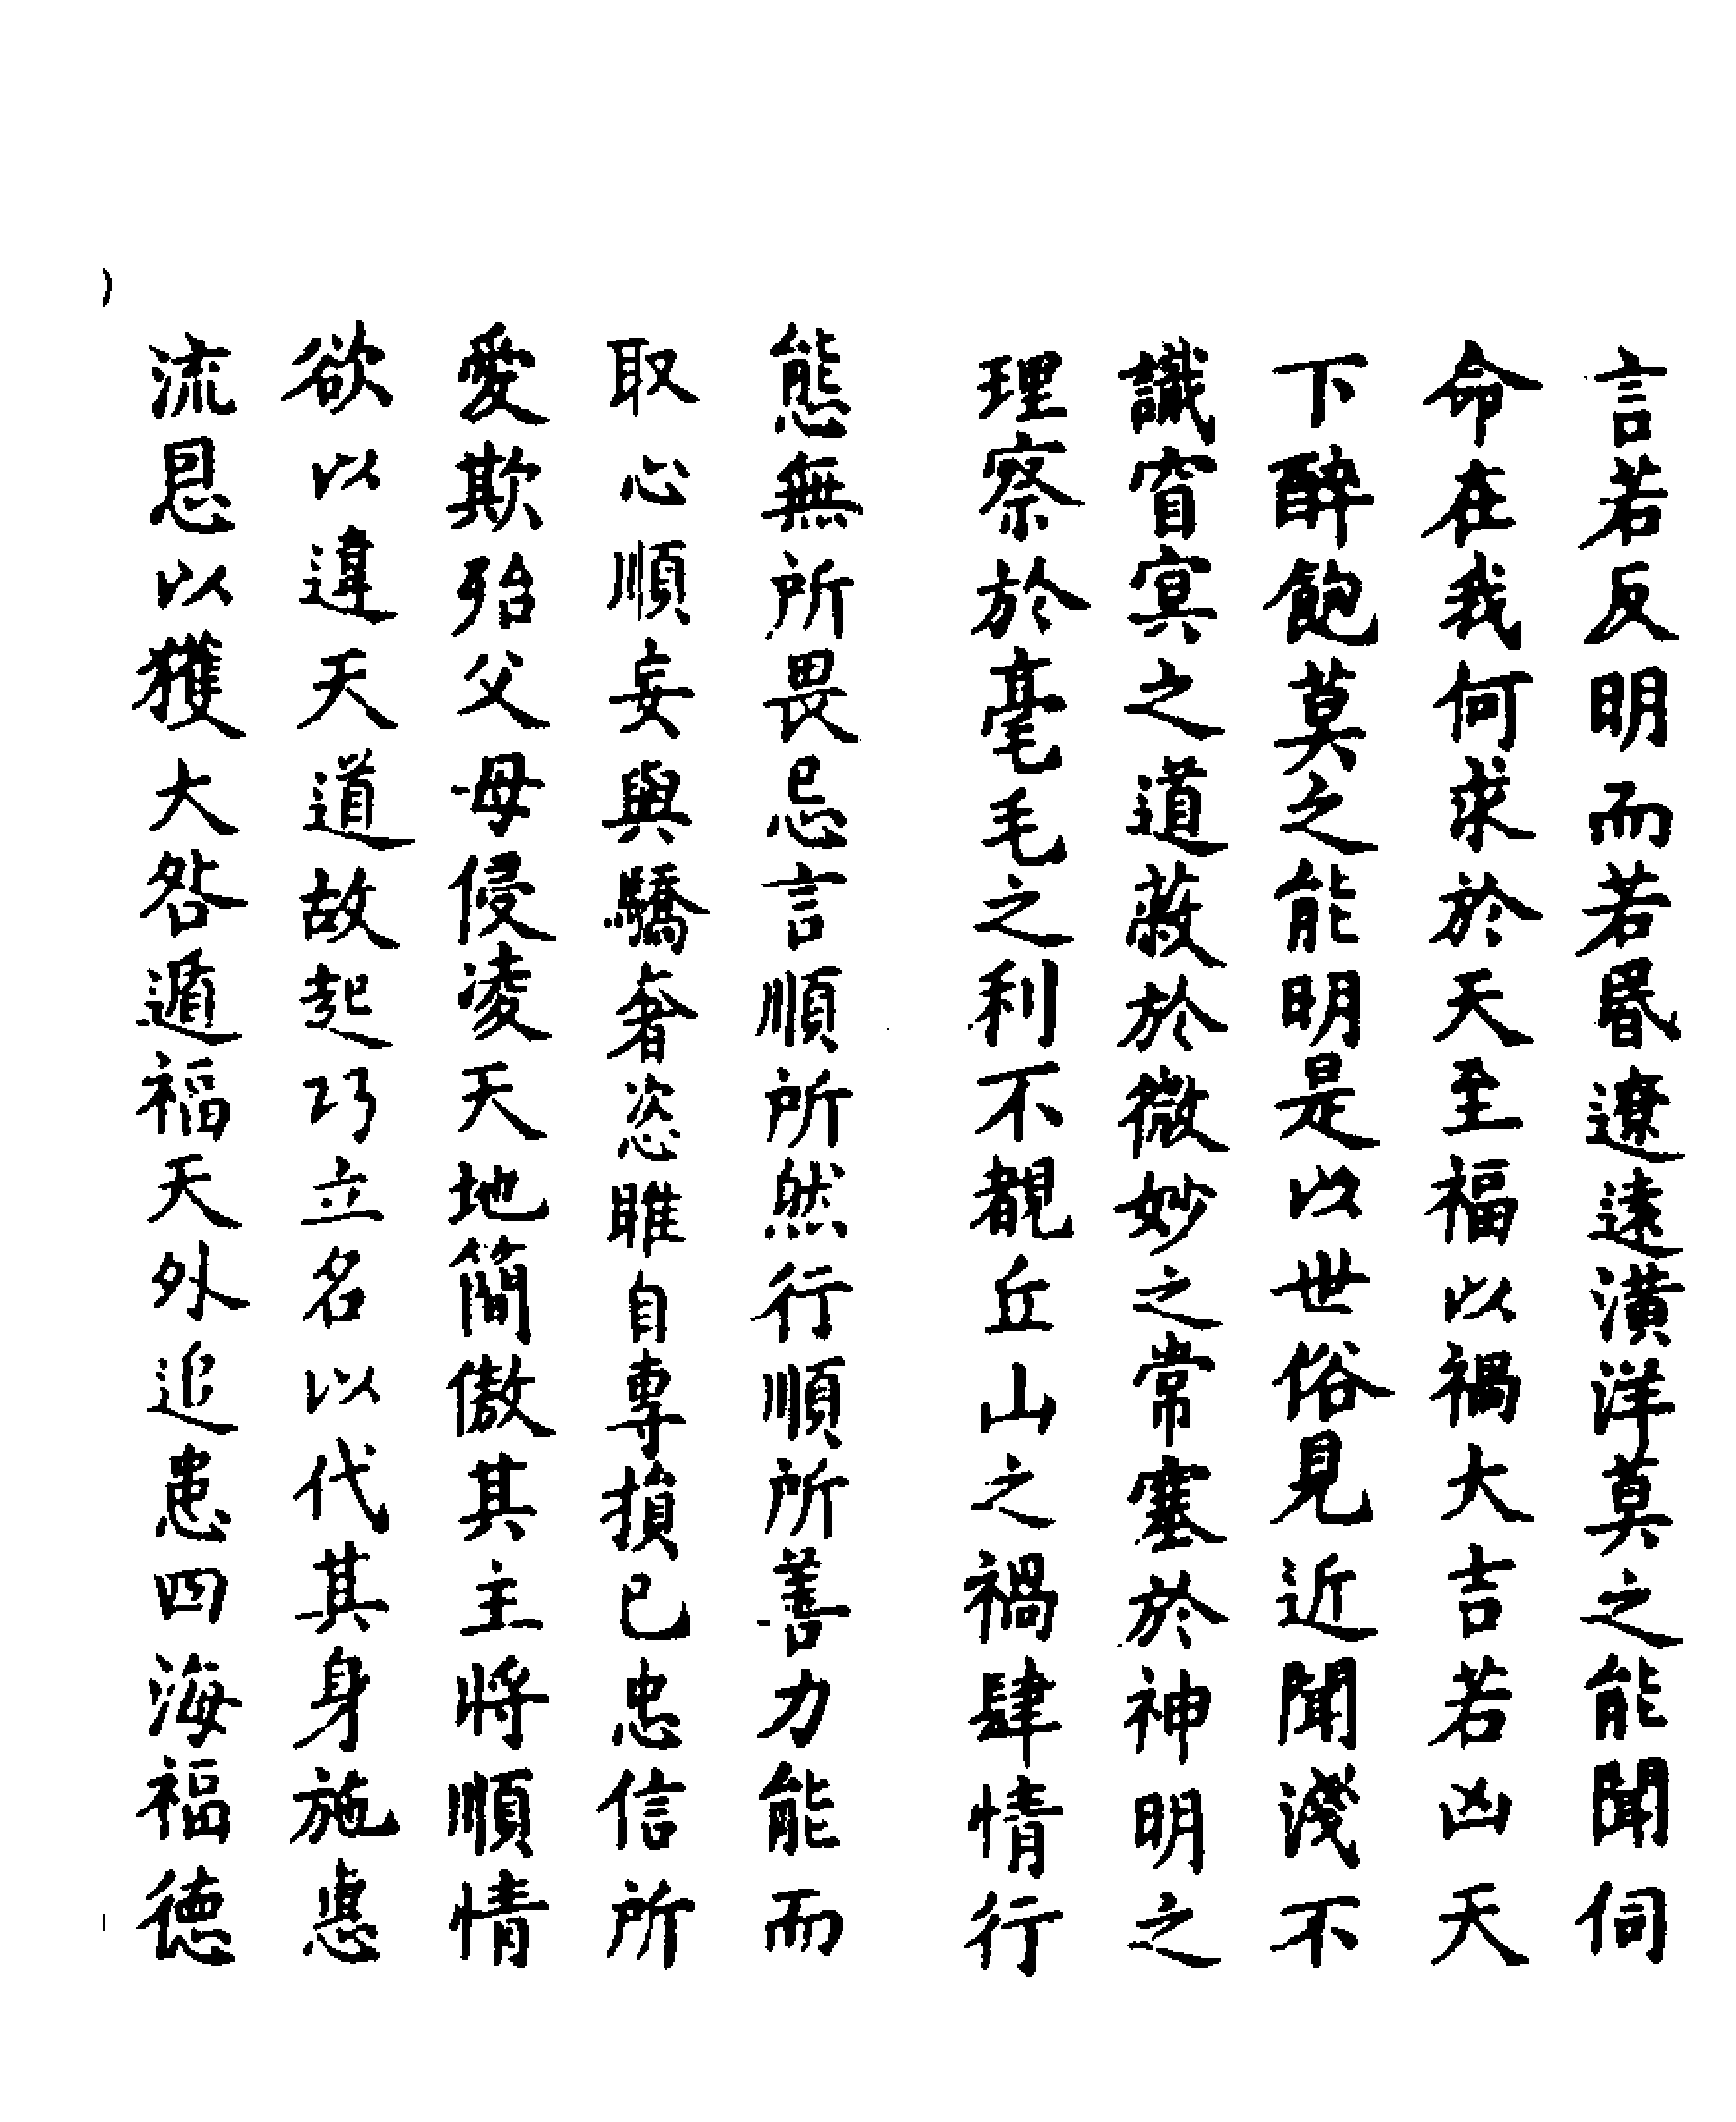 言若反明而若昬遼遠潢洋莫之能聞伺
命在我何求於天至福以禍大吉若凶天
下醉飽莫之能明是以世俗見近聞淺不
識窅冥之道蔽於微妙之常塞於神明之
理察於毫毛之利不覩丘山之禍肆情行
態無所畏忌言順所然行順所善力能而
取心順妄與驕奢恣睢自專損已忠信所
愛欺殆父母侵凌天地簡傲其主將順情
欲以違天道故起巧立名以代其身施惪
流恩以獲大咎遁福天外追患四海福德